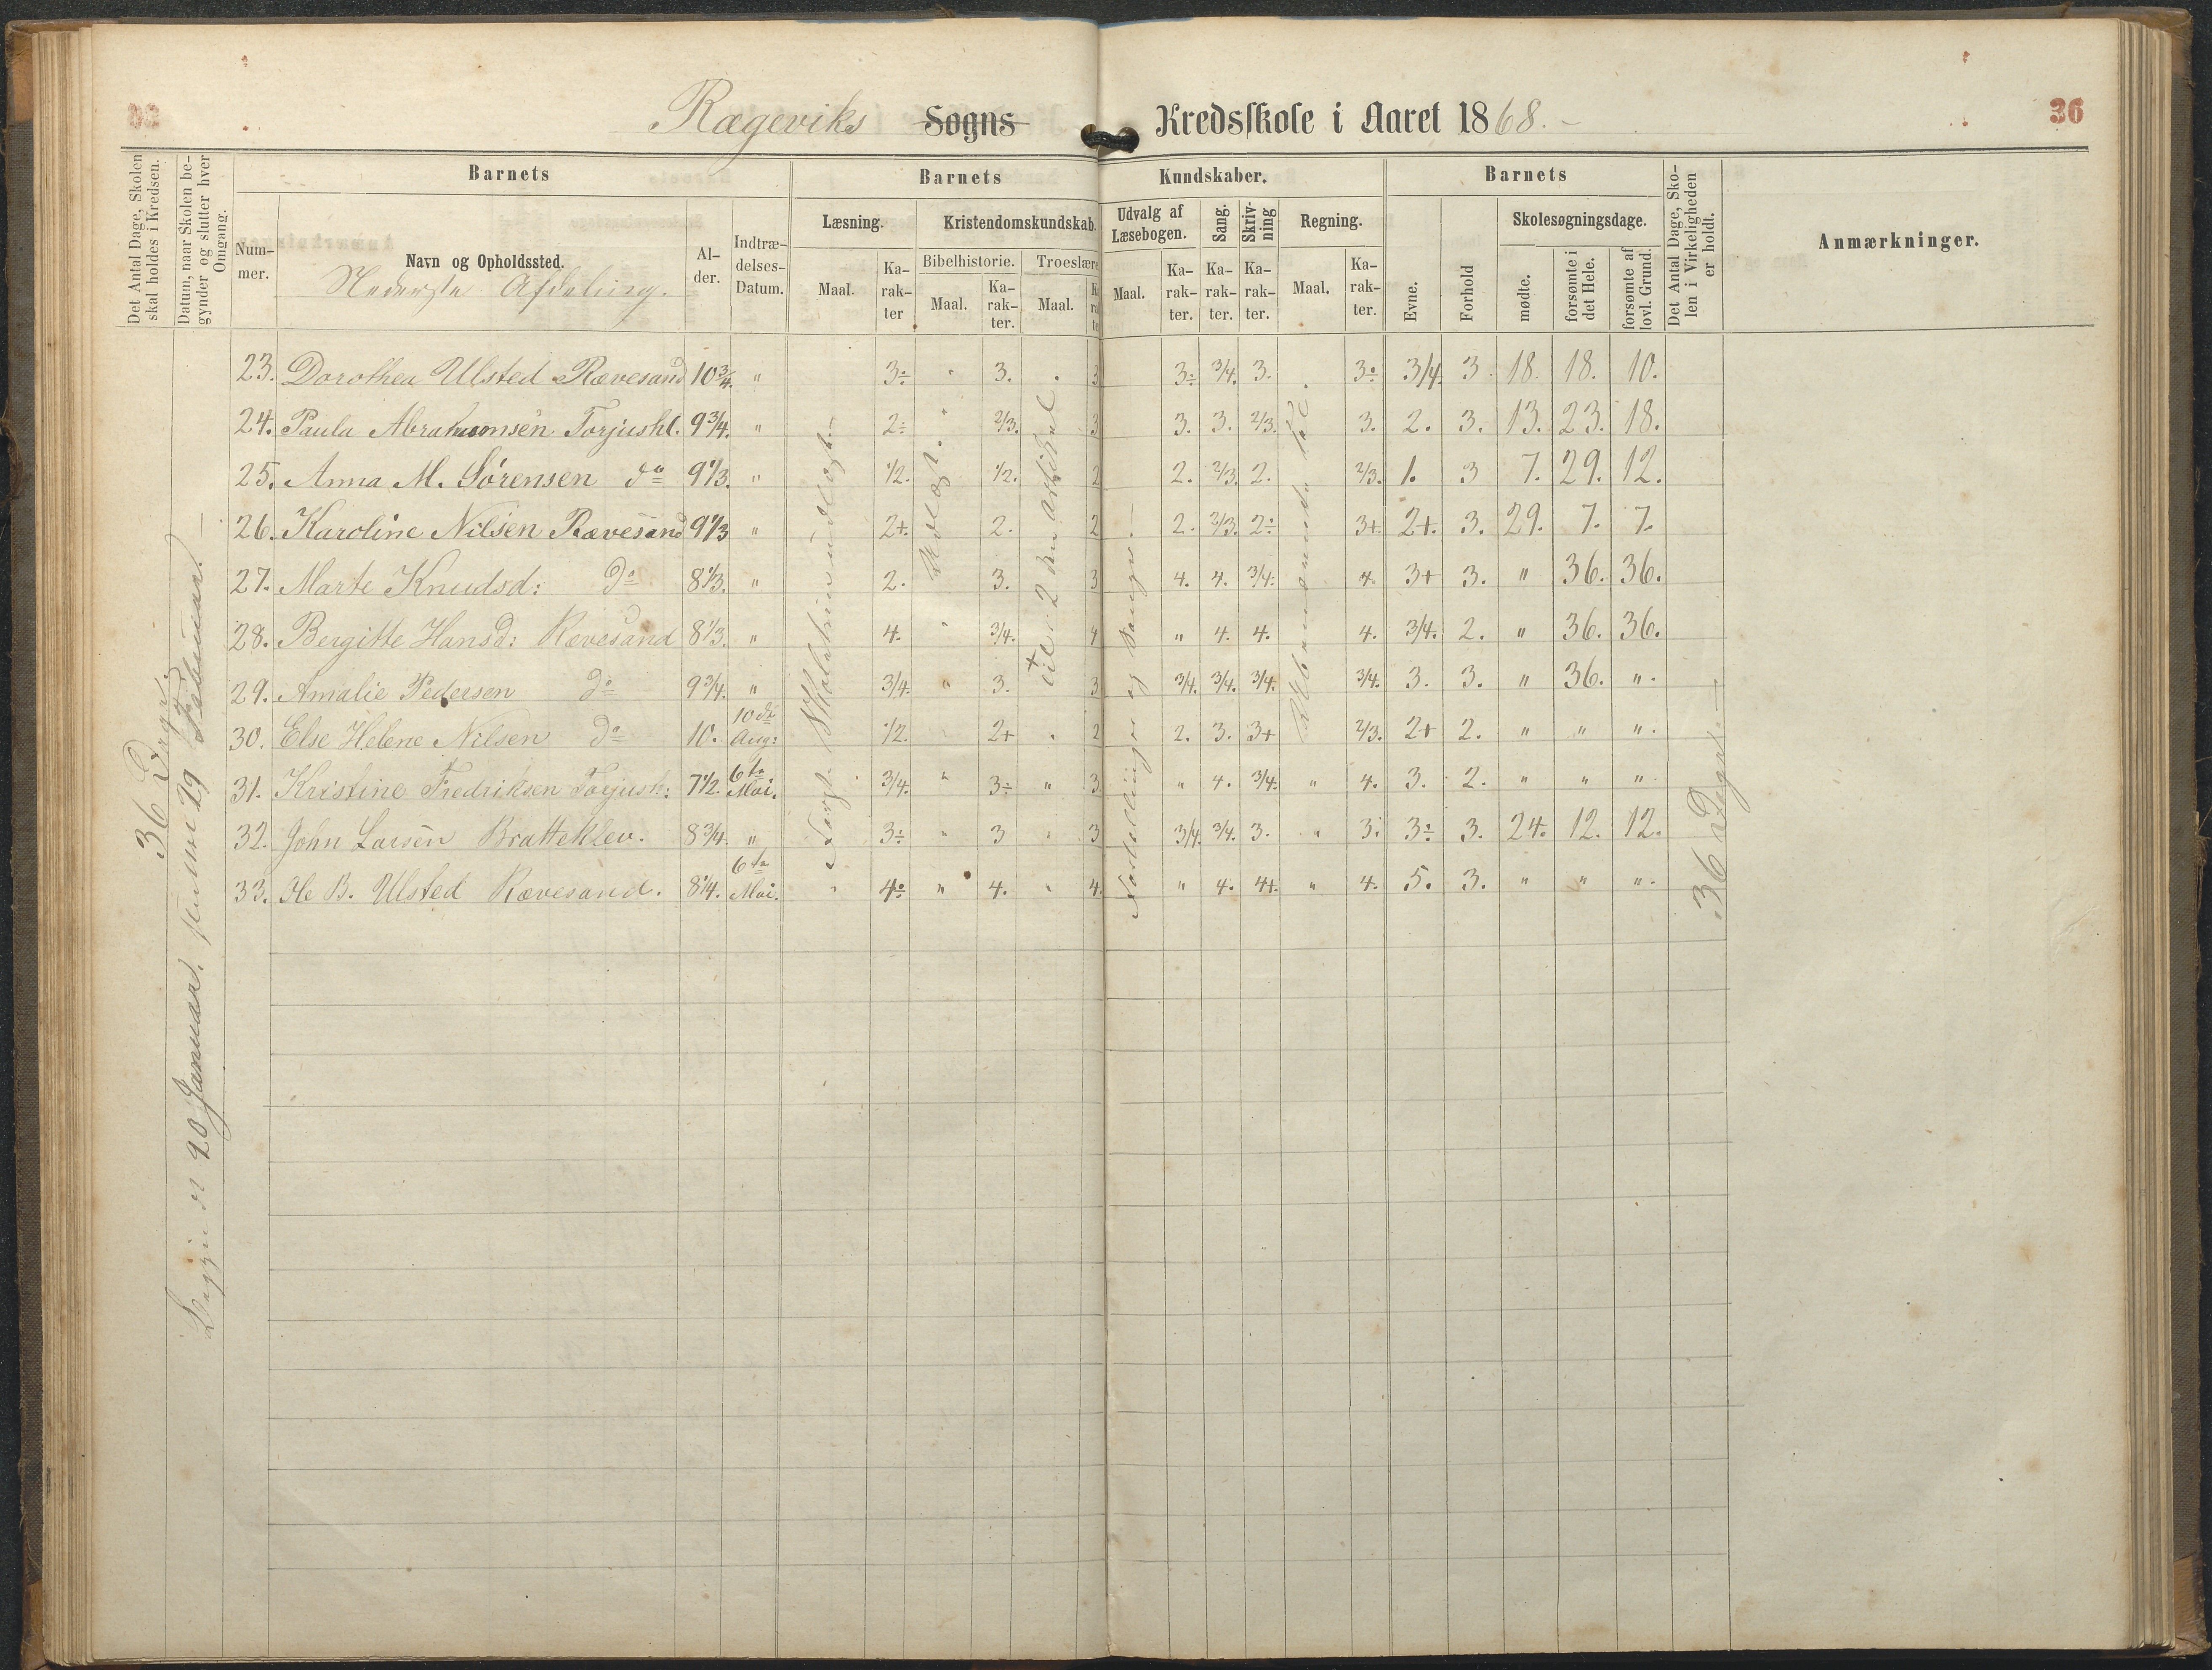 Rægeviks Sogns Kredsskole i Aaret 1868.
36
Det Antal Dage, Skolen skal holdes i Kredsen.
Datum, naar Skolen begynder og slutter hver Omgang.
Barnets
Barnets Kundskaber.
Barnets
Det Antal Dage, Skolen i Virkeligheden er holdt.
Anmærkninger.
Nummer.
Navn og Opholdssted.
Nederste Afdeling.
Alder.
Indtrædelses-Datum.
Læsning.
Kristendomskundskab.
Udvalg af Læsebogen.
Sang.
Skrivning
Regning.
Evne.
Forhold
Skolesøgningsdage.
Maal.
Karakter
Bibelhistorie.
Troeslære
Maal.
Karakter.
Maal.
Maal.
Karakter.
Karakter.
Karakter.
Maal.
Karakter.
mødte.
forsømte i det Hele.
forsømte af lovl. Grund.
23. Dorothea Ulsted Rævesand 10 3/4. " 3÷ " 3. . 3 3÷ 3/4. 3. 3÷ 3/4. 3. 18. 18. 10.
24. Paula Abrahamsen Torjushl. 9 3/4. " 2÷ " 2/3. 3 3. 3. 2/3. 3. 2. 3. 13. 23. 18.
25. Anna M. Sørensen do 9 1/3. " 1/2. 1/2. 2 2. 2/3. 2. 2/3. 1. 3 7. 29. 12.
26. Karoline Nilsen Rævesand 9 1/3 " 2+. 2. 2 2. 2/3. 2÷ 3+. 2+. 3. 29. 7. 7.
27. Marte Knudsd: do 8 1/3. " 2. 3. 3 4. 4. 3/4. 4. 3+ 3. " 36. 36.
28. Bergitte Hansd: Rævesand 8 1/3. " 4. " 3/4. 4 " 4. 4. 4. 3/4. 2. " 36. 36.
29. Amalie Pedersen do 9 3/4. " 3/4. " 3. 3 3/4. 3/4. 3/4. 3/4. 3. 3. " 36. ".
30. Else Helene Nilsen do 10. 10de Aug: 1/2. 2+ . 2 2. 3. 3+ 2/3. 2+ 2. " " ".
31. Kristine Fredriksen Torjush: 7 1/2. 6te Mai. 3/4. " 3÷ " 3. " 4. 3/4. " 4. 3. 2. " " "
32. John Larsen Bratteklev. 8 3/4. " 3÷ " 3 " 3 3/4. 3/4. 3. " 3. 3÷ 3. 24. 12. 12.
33. Ole B. Ulsted Rævesand. 8 1/4. 6te Mai. " 4÷ " 4. " 4. " 4. 4+. " 4. 5. 3. " " ".
36 Dage.
20 Januar. 29 Februar.
Udvalgt.
til 2den Artikel
Fortællinger og Sange.
36 Dage.